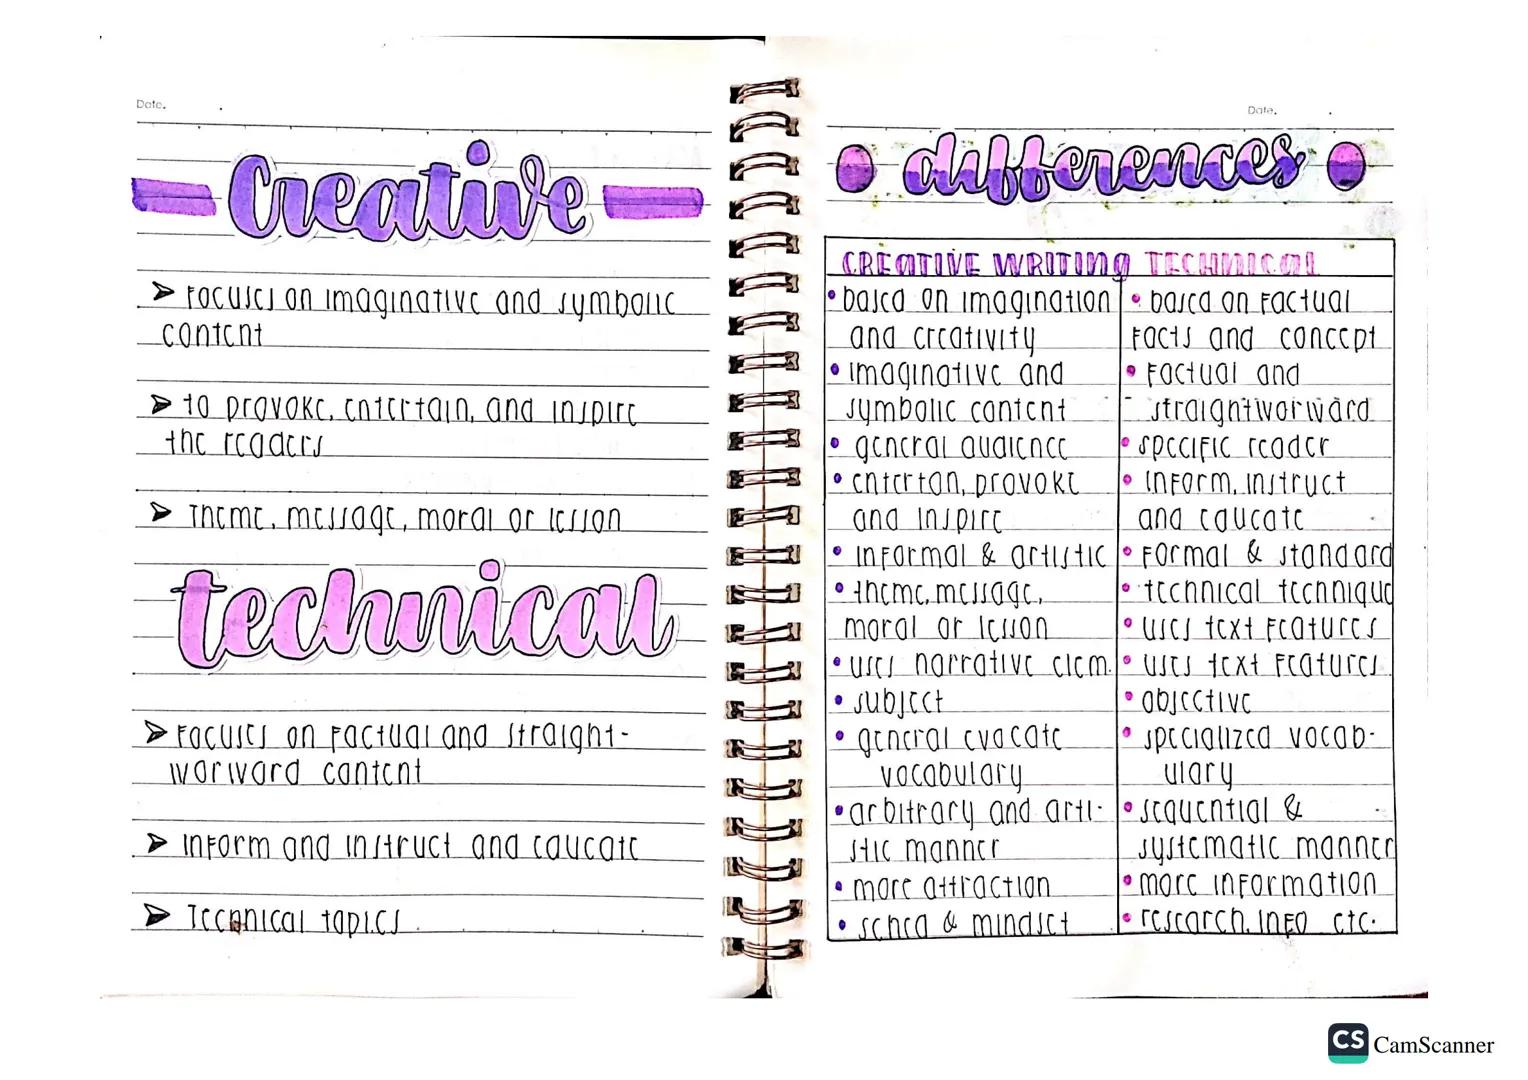 Date.
Creative
➤ Focuses on imaginative and symbolic
content
➤ to provoke, entertain, and inspire
the readers
➤ Theme, message, moral or lesson
technical
➤ Focuses on factual and straight-
worward content
➤ Inform and instruct and educate
➤ Technical topics
Date.
differences
CREATIVE WRITING
• based on imagination
and creativity
• imaginative and
symbolic content
• general audience
• enterton, provoke
and inspire
• informal & artistic
• theme, message,
moral or lesson
• uses narrative elem.
• subject
• general evocate
vocabulary
• arbitrary and arti-
stic manner
• more attraction
• & mindset
TECHNICAL
• based on factual
facts and concept
• factual and
- straightworward
• specific reader
• inform, instruct
and educate
• formal & standard
• technical technique
• uses text features
• uses text features
• objective
• specialized vocab-
ulary
• sequential &
systematic manner
• more information
• research, info etc.
CS CamScanner